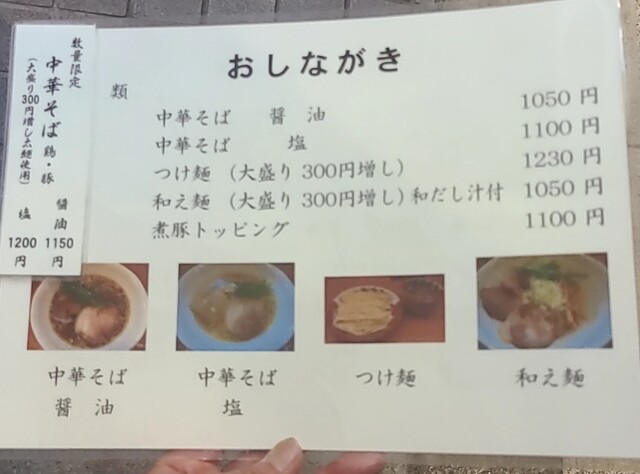 おしながき
類
中華そば 醤油 1050 円
中華そば 塩 1100 円
つけ麺 (大盛り 300円増し) 1230 円
和え麺 (大盛り 300円増し) 和だし汁付 1050 円
煮豚トッピング 1100 円
数量限定
中華そば 鶏・豚
(大盛り300円増し太麺使用)
醤油 1150円
塩 1200円
中華そば
醤油
中華そば
塩
つけ麺
和え麺